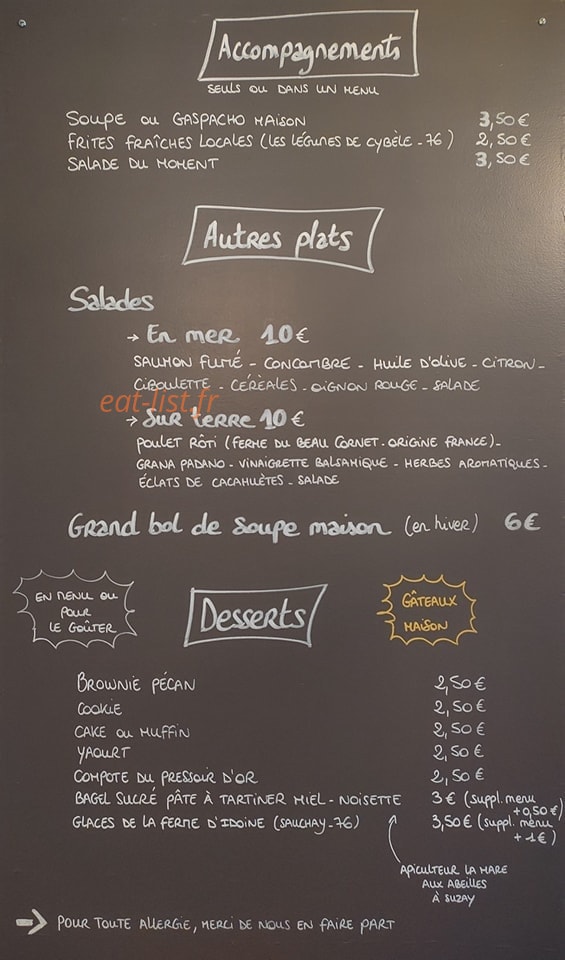 Accompagnements
SEULS OU DANS UN MENU
SOUPE OU GASPACHO MAISON 3,50€
FRITES FRAÎCHES LOCALES (LES LÉGUMES DE CYBÈLE - 76) 2,50€
SALADE DU MOMENT 3,50€
Autres plats
Salades
→ En mer 10€
SAUMON FUMÉ - CONCOMBRE - HUILE D'OLIVE - CITRON -
CIBOULETTE - CÉRÉALES - OIGNON ROUGE - SALADE
eat-list.fr
→ Sur terre 10€
POULET RÔTI (FERME DU BEAU CORNET - ORIGINE FRANCE) -
GRANA PADANO - VINAIGRETTE BALSAMIQUE - HERBES AROMATIQUES -
ÉCLATS DE CACAHUÈTES - SALADE
Grand bol de soupe maison (en hiver) 6€
EN MENU OU
POUR
LE GOÛTER
Desserts
GÂTEAUX
MAISON
BROWNIE PÉCAN 2,50€
COOKIE 2,50€
CAKE OU MUFFIN 2,50€
YAOURT 2,50€
COMPOTE DU PRESSOIR D'OR 2,50€
BAGEL SUCRÉ PÂTE À TARTINER MIEL - NOISETTE 3€ (suppl. menu
+0,50€)
GLACES DE LA FERME D'IDOINE (SAUCHAY - 76) 3,50€ (suppl. menu
+1€)
APICULTEUR LA MARE
AUX ABEILLES
À SUZAY
→ POUR TOUTE ALLERGIE, MERCI DE NOUS EN FAIRE PART